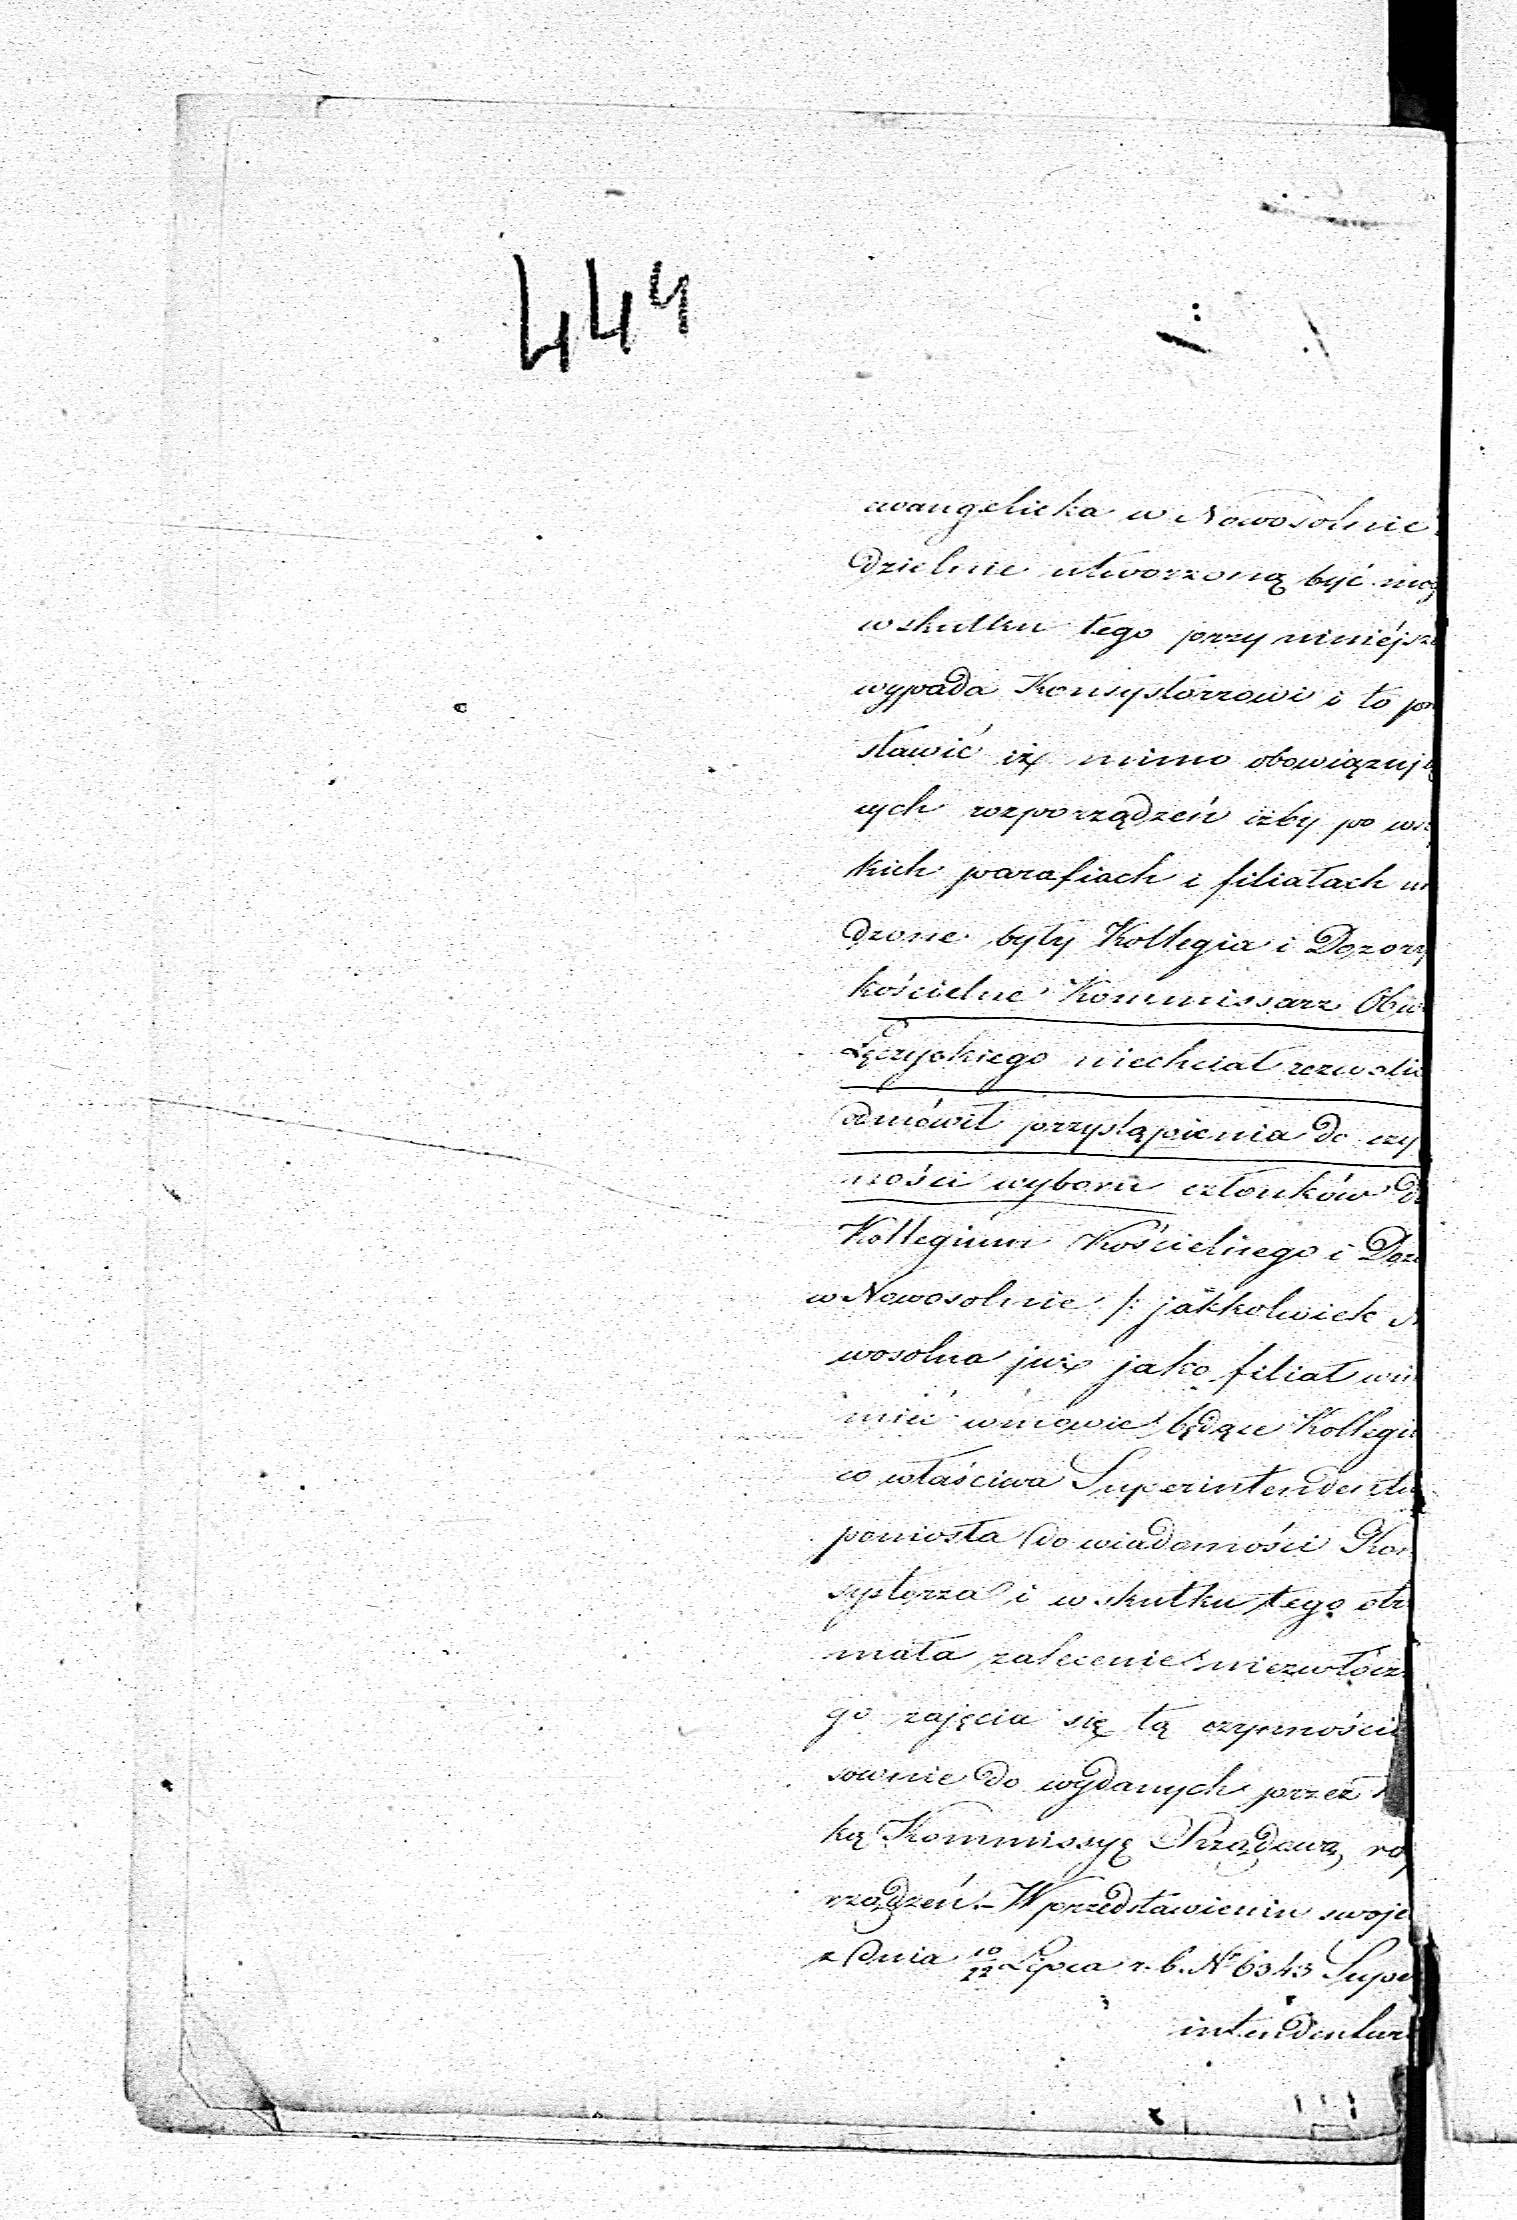 444
ewangelicka w Nowosolnie
dzielnie utworzoną być mog
w skutku tego przy niniéjsze
wypada Konsystorzowi i to prz
stawić iż mimo obowiązują
cych rozporządzeń iżby po wsz
kich parafiach i filiałach u
dzone były Kollegia i Dozory
kościelne Kommissarz Obw
Łęczyckiego niechciał zezwolić
odmówił przystąpienia do czy
ności wyboru członków d
Kollegium Kościelnego i Dozo
w Nowosolnie /: jakkolwiek N
wosolna już jako filiał win
mieć w mowie będące Kollegiu
co właściwa Superintendentu
poniosła do wiadomości Kon
systorza i w skutku tego otrz
mała zalecenie niezwłoczn
go zajęcia się tą czynności
sownie do wydanych przez
ką Kommissyę Rządową roz
rządzeń. – W przedstawieniu swoje
z dnia 10/22 Lipca r. b. Nr 6343 Supe
intendentura